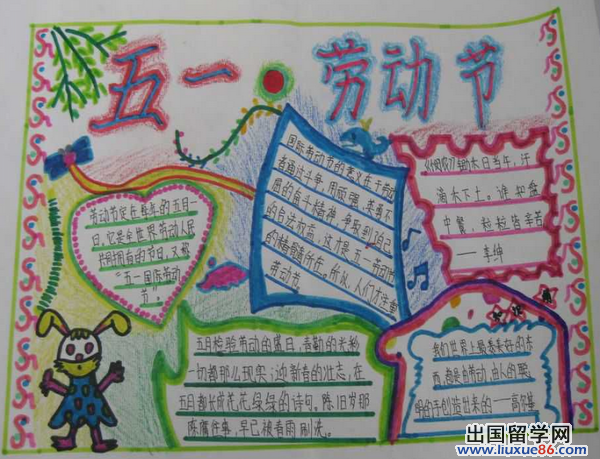 五一劳动节
劳动节定在每年的五月一
日,它是全世界劳动人民
共同拥有的节日,又称
“五一国际劳动
节”。
国际劳动节的意义在于劳动
者通过斗争,用顽强、英勇不
屈的奋斗精神,争取到了自己
的合法权益,这才是五一劳动节
的精髓所在。所以,人们才注重
劳动节。
《悯农》锄禾日当午,汗
滴禾下土。谁知盘
中餐,粒粒皆辛苦
——李绅
五月检验劳动的盛日,春勤的光彩
一切都那儿现实;迎新春的壮志,在
五月都长成花花绿绿的诗句。除旧岁那
陈腐往事,早已被春雨刷洗。
我们世界上最美好的东
西,都是由劳动、由人的聪
明的手创造出来的——高尔基
出国留学网
www.liuxue86.com